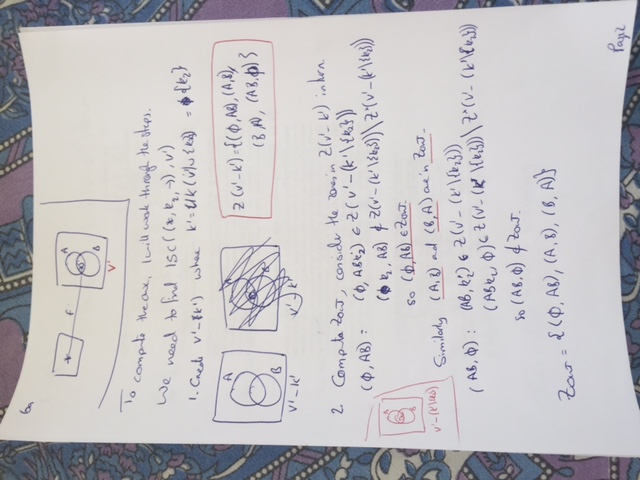 6a
* f A B
V'
To compute the arc, I will work through the steps.
We need to find ISC((*, k₂, →), v')
1. Create v' - k' where k' = {k₂}
A B A B
v' - k' v' - k'
Z(v'-k') = {(∅, AB), (A, B),
(B, A), (AB, ∅)}
2 Compute Zout, consider the zones in Z(v'-k') in turn.
(∅, AB) : (∅, ABk₂) ∈ Z(v' - (k' \ {k₂}))
(k₂, AB) ∉ Z(v' - (k' \ {k₂})) \ Z*(v' - (k' \ {k₂}))
so (∅, AB) ∈ Zout.
A B
v' - (k' \ {k₂})
Similarly (A, B) and (B, A) are in Zout.
(AB, ∅) : (AB, k₂) ∈ Z(v' - (k' \ {k₂}))
(ABk₂, ∅) ∈ Z(v' - (k' \ {k₂})) \ Z*(v' - (k' \ {k₂}))
so (AB, ∅) ∉ Zout.
Zout = {(∅, AB), (A, B), (B, A)}
Page 2